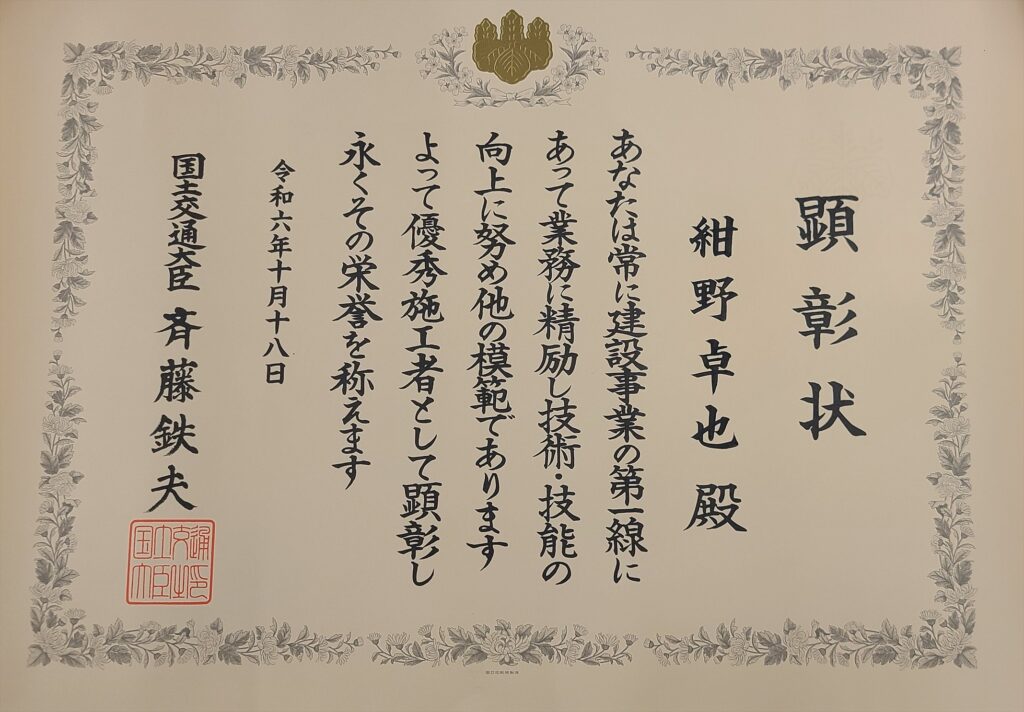 顕彰状
紺野卓也 殿
あなたは常に建設事業の第一線に
あって業務に精励し技術・技能の
向上に努め他の模範であります
よって優秀施工者として顕彰し
永くその栄誉を称えます
令和六年十月十八日
国土交通大臣 斉藤鉄夫
国土交通
大臣之印